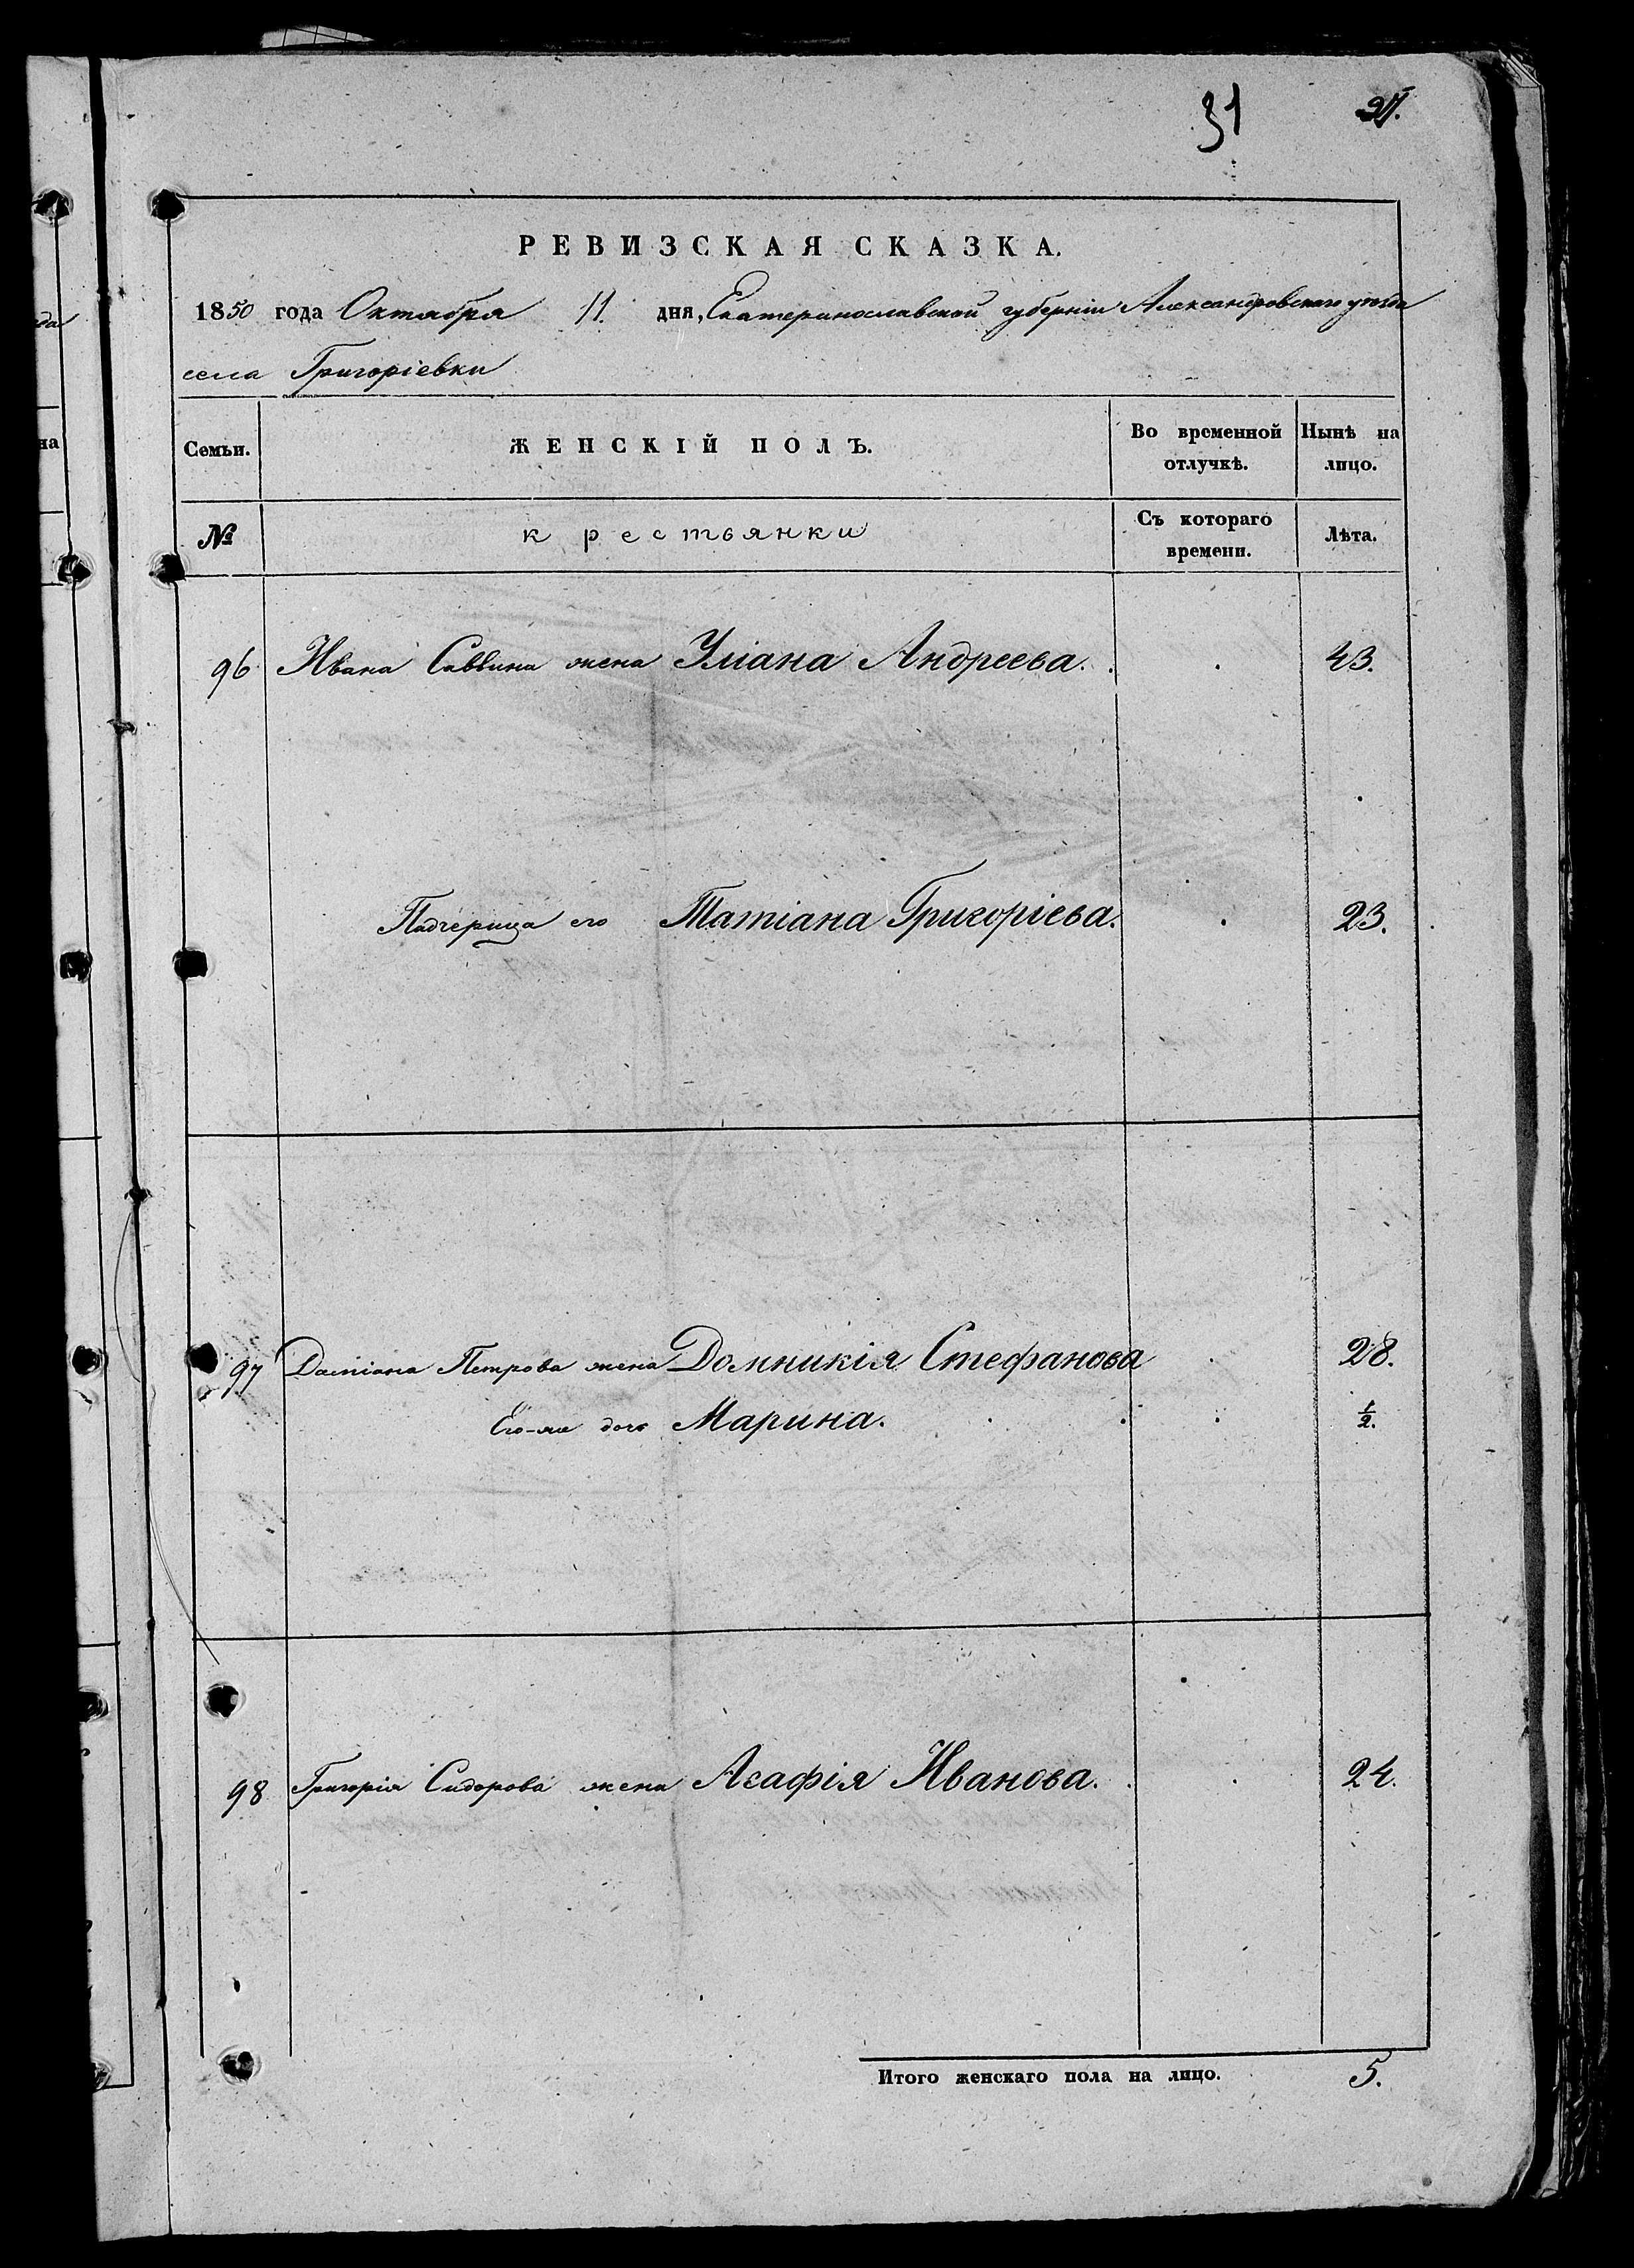 31
РЕВИЗСКАЯ СКАЗКА.
1850 года Октября 11 дня, Екатеринославской губерніи Александровскаго уѣзда
села Григоріевки
Семьи. ЖЕНСКІЙ ПОЛЪ. Во временной отлучкѣ. Нынѣ на лицо.
№ крестьянки Съ котораго времени. Лѣта.
96 Ивана Саввина жена Уліана Андреева. 43.
Падчерица его Татіана Григоріева. 23.
97 Даміана Петрова жена Домникія Стефанова 28.
Его-же дочь Марина. ½.
98 Григорія Сидорова жена Агафія Иванова. 24.
Итого женскаго пола на лицо. 5.